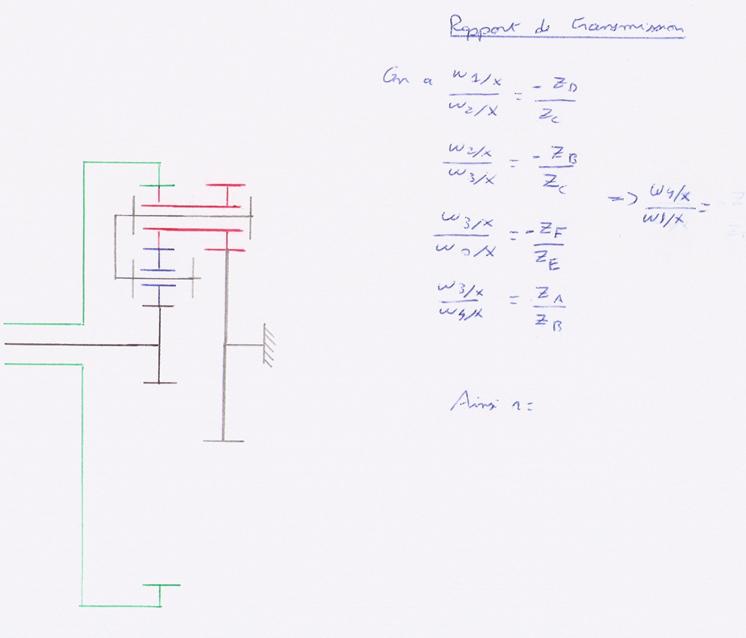 Rapport de transmission
On a ω1/x / ω2/x = - Z_D / Z_C
ω2/x / ω3/x = - Z_B / Z_C
=> ω4/x / ω1/x =
ω3/x / ω0/x = - Z_F / Z_E
ω3/x / ω4/x = Z_A / Z_B
Ainsi r =